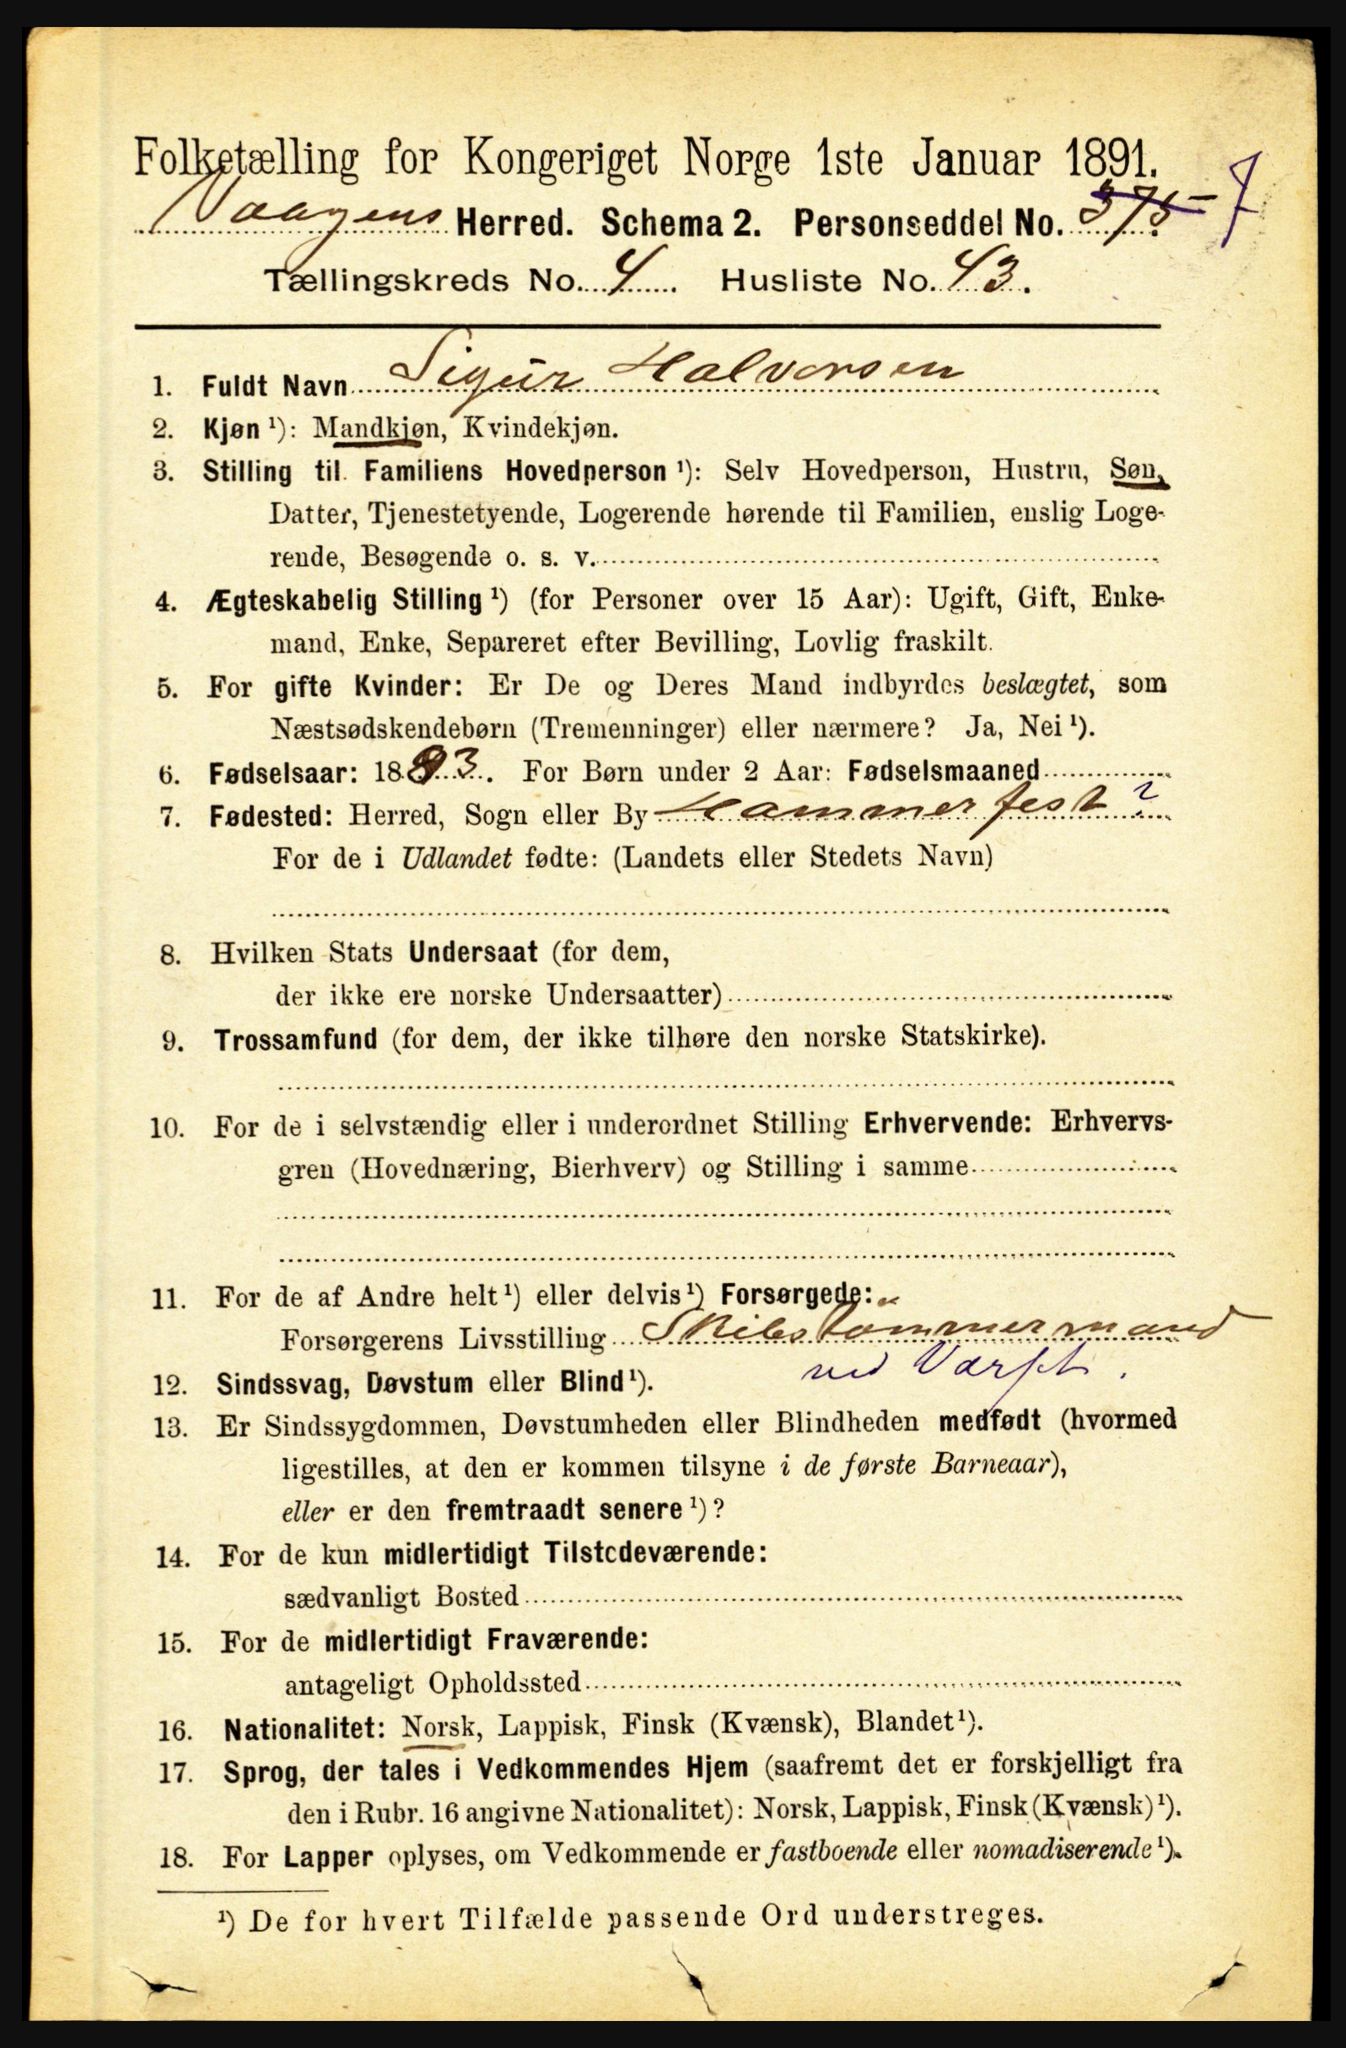 Folketælling for Kongeriget Norge 1ste Januar 1891.
Vaagens Herred. Schema 2. Personseddel No. 375 7
Tællingskreds No. 4. Husliste No. 43.
1. Fuldt Navn Sigur Halvorsen
2. Kjøn ¹): Mandkjøn, Kvindekjøn.
3. Stilling til Familiens Hovedperson ¹): Selv Hovedperson, Hustru, Søn,
Datter, Tjenestetyende, Logerende hørende til Familien, enslig Loge-
rende, Besøgende o. s. v.
4. Ægteskabelig Stilling ¹) (for Personer over 15 Aar): Ugift, Gift, Enke-
mand, Enke, Separeret efter Bevilling, Lovlig fraskilt.
5. For gifte Kvinder: Er De og Deres Mand indbyrdes beslægtet, som
Næstsødskendebørn (Tremenninger) eller nærmere? Ja, Nei ¹).
6. Fødselsaar: 1883. For Børn under 2 Aar: Fødselsmaaned
7. Fødested: Herred, Sogn eller By Hammerfest ?
For de i Udlandet fødte: (Landets eller Stedets Navn)
8. Hvilken Stats Undersaat (for dem,
der ikke ere norske Undersaatter)
9. Trossamfund (for dem, der ikke tilhøre den norske Statskirke).
10. For de i selvstændig eller i underordnet Stilling Erhvervende: Erhvervs-
gren (Hovednæring, Bierhverv) og Stilling i samme
11. For de af Andre helt ¹) eller delvis ¹) Forsørgede:
Forsørgerens Livsstilling Skibstømmermand
ved Værft.
12. Sindssvag, Døvstum eller Blind ¹).
13. Er Sindssygdommen, Døvstumheden eller Blindheden medfødt (hvormed
ligestilles, at den er kommen tilsyne i de første Barneaar),
eller er den fremtraadt senere ¹)?
14. For de kun midlertidigt Tilstedeværende:
sædvanligt Bosted
15. For de midlertidigt Fraværende:
antageligt Opholdssted
16. Nationalitet: Norsk, Lappisk, Finsk (Kvænsk), Blandet ¹).
17. Sprog, der tales i Vedkommendes Hjem (saafremt det er forskjelligt fra
den i Rubr. 16 angivne Nationalitet): Norsk, Lappisk, Finsk (Kvænsk) ¹).
18. For Lapper oplyses, om Vedkommende er fastboende eller nomadiserende ¹).
¹) De for hvert Tilfælde passende Ord understreges.